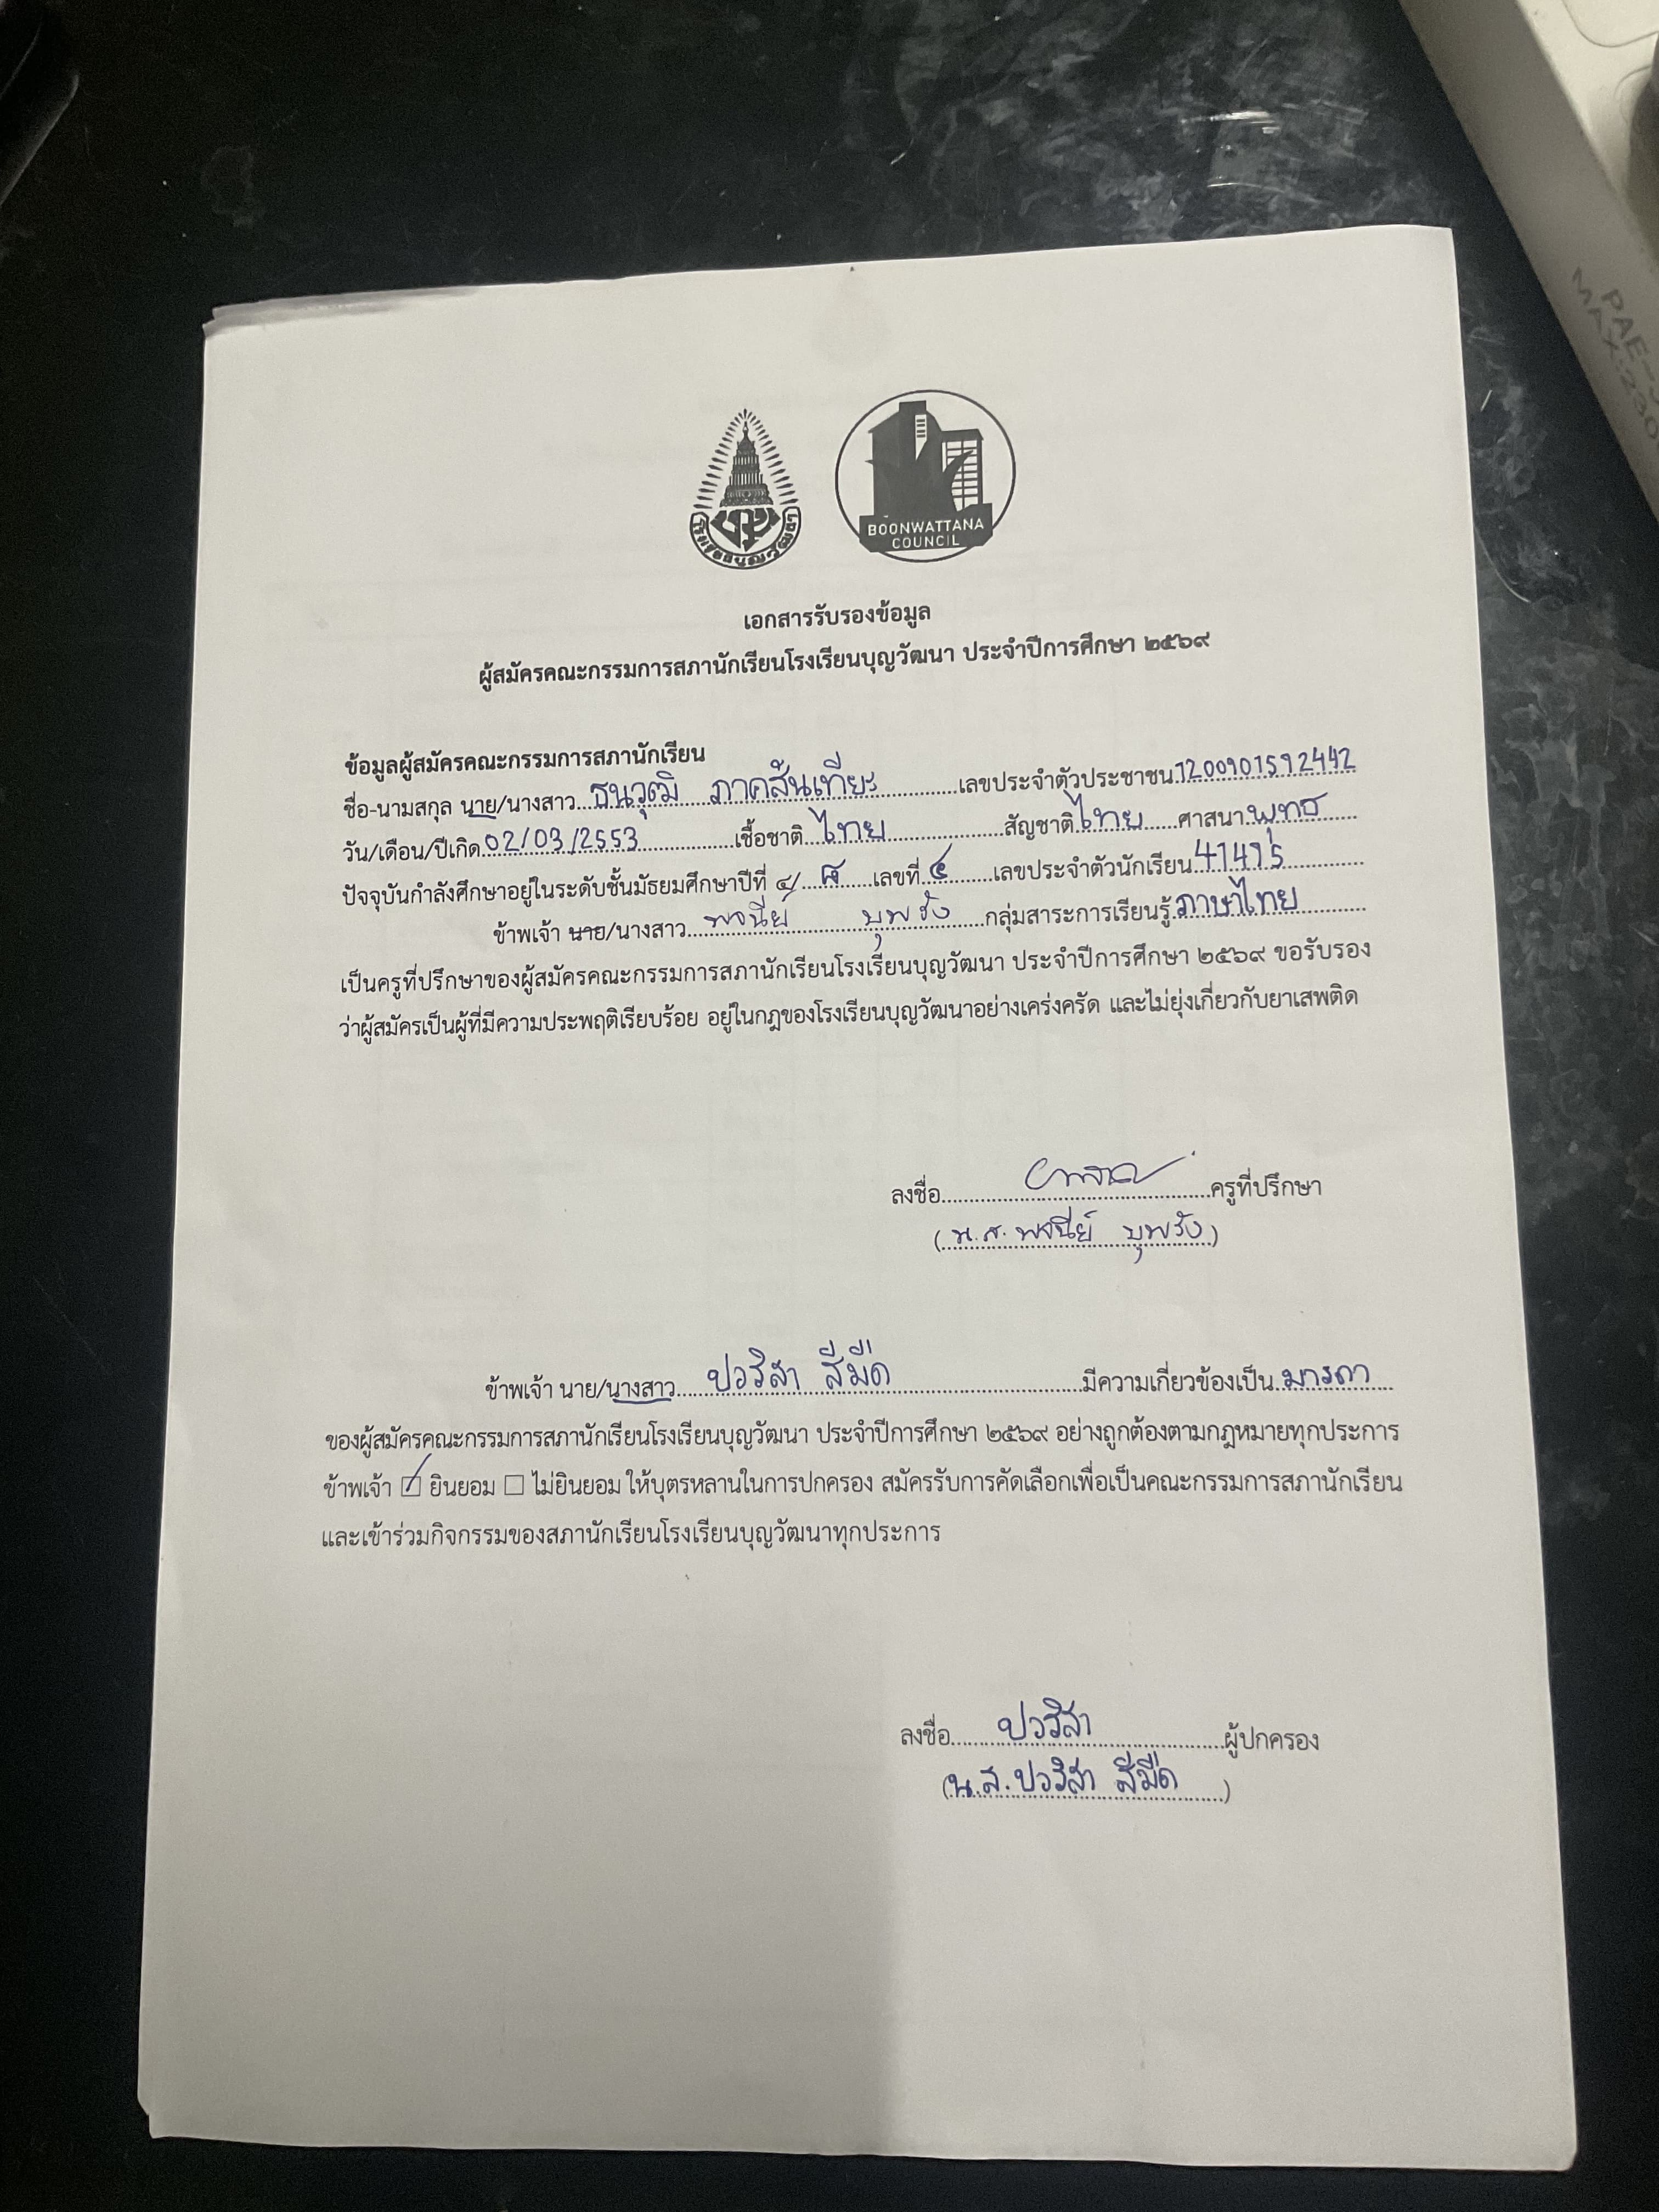 โรงเรียนบุญวัฒนา
BOONWATTANA
COUNCIL
เอกสารรับรองข้อมูล
ผู้สมัครคณะกรรมการสภานักเรียนโรงเรียนบุญวัฒนา ประจำปีการศึกษา ๒๕๖๙
ข้อมูลผู้สมัครคณะกรรมการสภานักเรียน
ชื่อ-นามสกุล นาย/นางสาว ธนวุฒิ ภาคสันเทียะ เลขประจำตัวประชาชน 1200901592442
วัน/เดือน/ปีเกิด 02/03/2553 เชื้อชาติ ไทย สัญชาติ ไทย ศาสนา พุทธ
ปัจจุบันกำลังศึกษาอยู่ในระดับชั้นมัธยมศึกษาปีที่ ๔/ เลขที่ ๔ เลขประจำตัวนักเรียน 41415
ข้าพเจ้า นาย/นางสาว พจนีย์ บุพรัง กลุ่มสาระการเรียนรู้ ภาษาไทย
เป็นครูที่ปรึกษาของผู้สมัครคณะกรรมการสภานักเรียนโรงเรียนบุญวัฒนา ประจำปีการศึกษา ๒๕๖๙ ขอรับรอง
ว่าผู้สมัครเป็นผู้ที่มีความประพฤติเรียบร้อย อยู่ในกฎของโรงเรียนบุญวัฒนาอย่างเคร่งครัด และไม่ยุ่งเกี่ยวกับยาเสพติด
ลงชื่อ ครูที่ปรึกษา
(น.ส. พจนีย์ บุพรัง)
ข้าพเจ้า นาย/นางสาว ปวริสา สีมืด มีความเกี่ยวข้องเป็น มารดา
ของผู้สมัครคณะกรรมการสภานักเรียนโรงเรียนบุญวัฒนา ประจำปีการศึกษา ๒๕๖๙ อย่างถูกต้องตามกฎหมายทุกประการ
ข้าพเจ้า ☑ ยินยอม ☐ ไม่ยินยอม ให้บุตรหลานในการปกครอง สมัครรับการคัดเลือกเพื่อเป็นคณะกรรมการสภานักเรียน
และเข้าร่วมกิจกรรมของสภานักเรียนโรงเรียนบุญวัฒนาทุกประการ
ลงชื่อ ปวริสา ผู้ปกครอง
(น.ส. ปวริสา สีมืด)